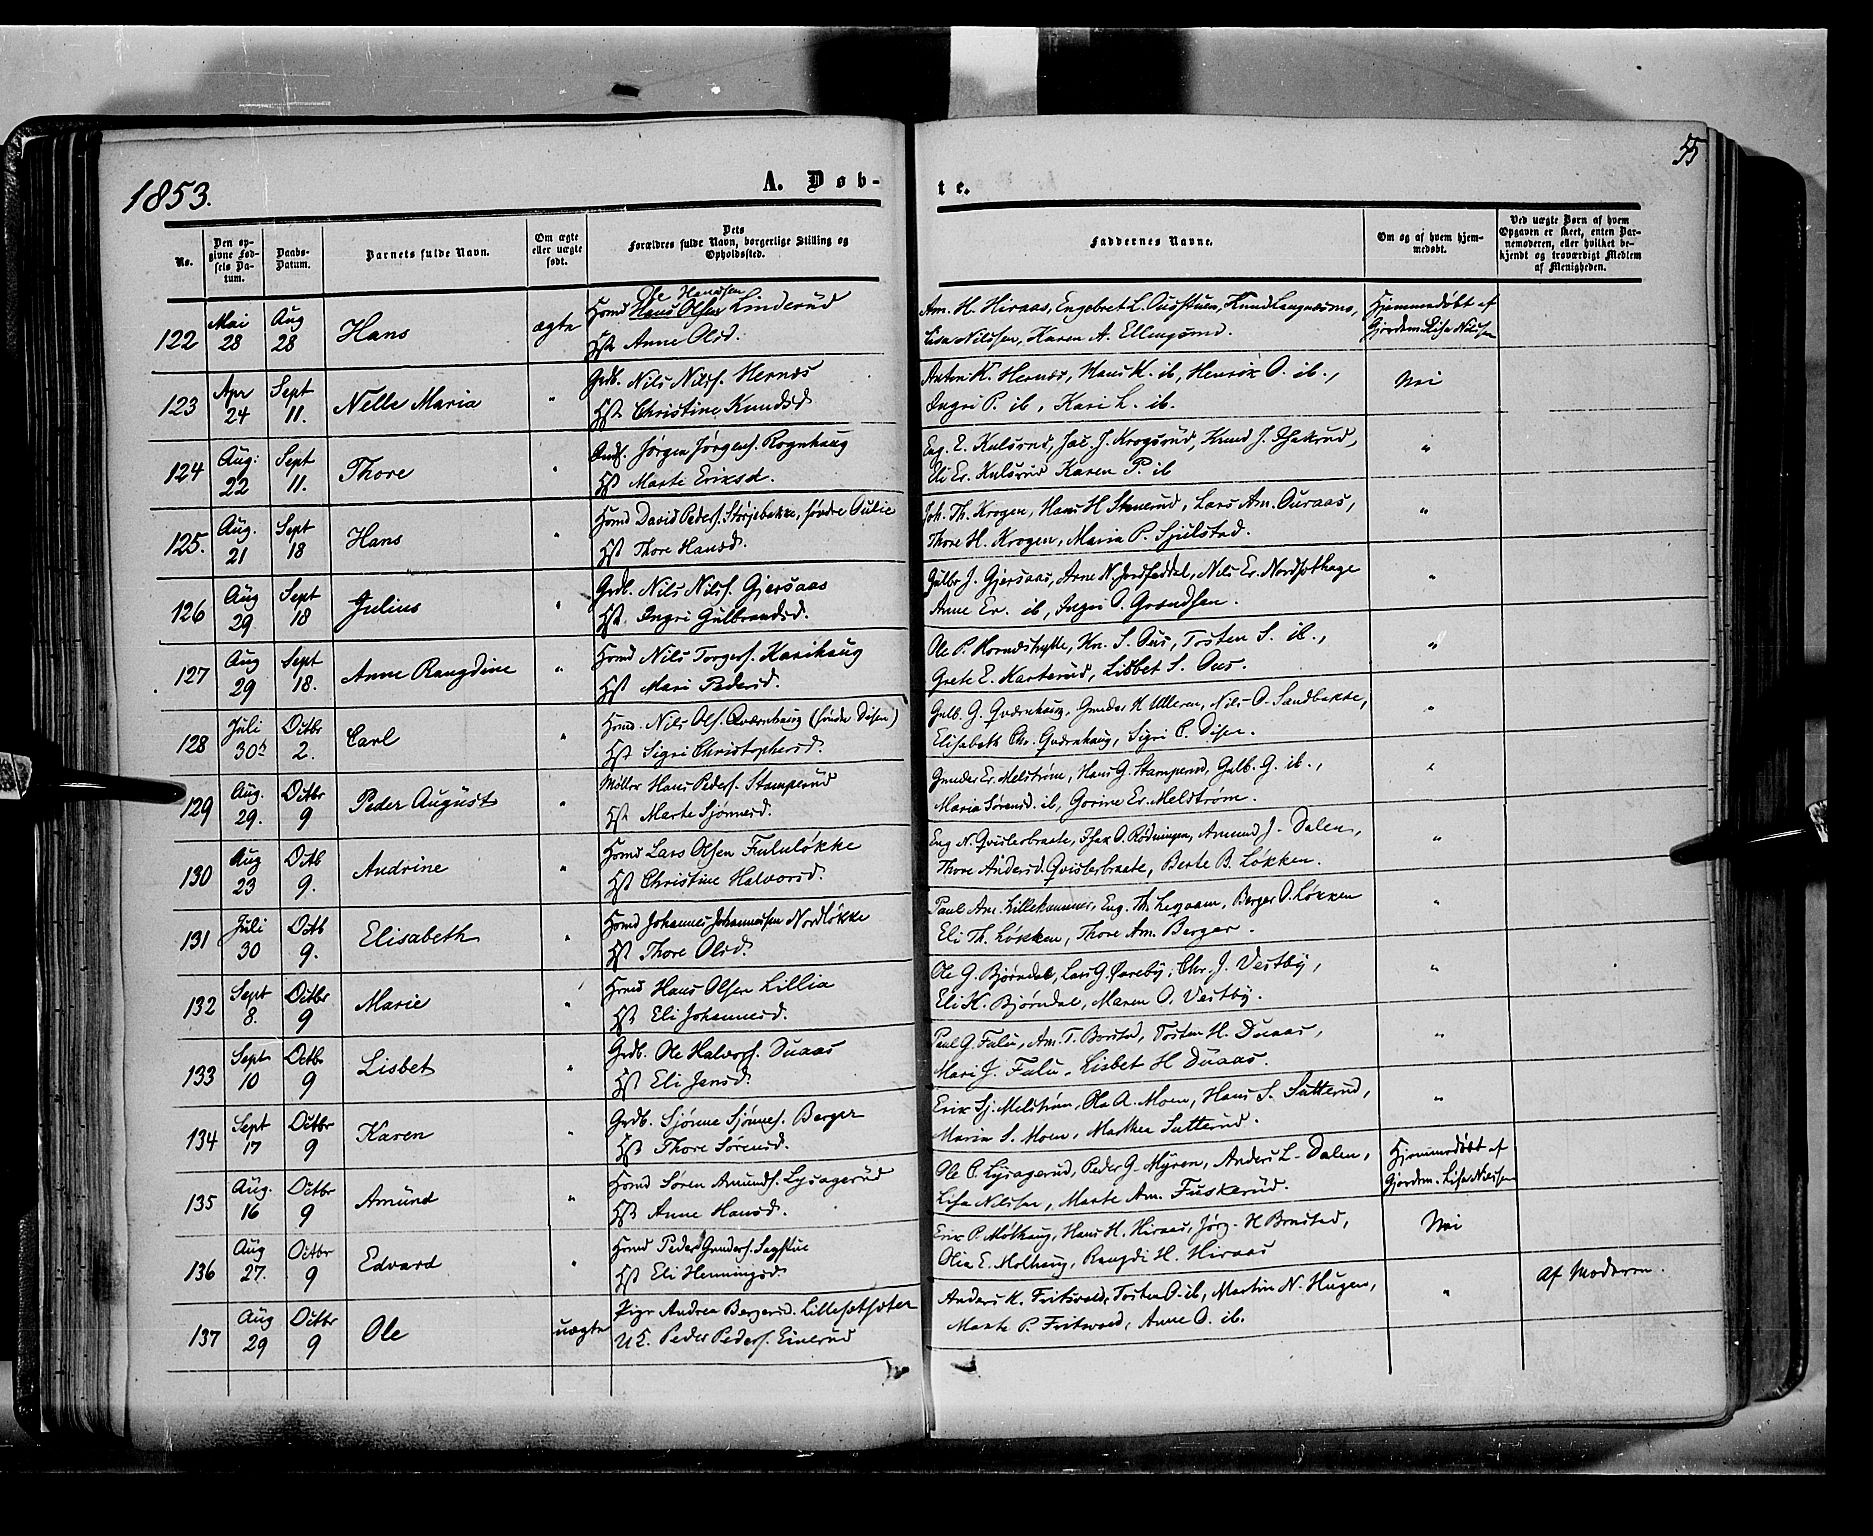 55
1853.
A. Døb-
te.
No.
Den op-
givne Fød-
sels Da-
tum.
Daabs-
Datum.
Barnets fulde Navn.
Om ægte
eller uægte
født.
Dets
Forældres fulde Navn, borgerlige Stilling og
Opholdssted.
Faddernes Navne.
Om og af hvem hjem-
medøbt.
Ved uægte Børn af hvem
Opgaven er skeet, enten Bar-
nemoderen, eller hvilket be-
kjendt og troværdigt Medlem
af Menigheden.
122
Mai
28
Aug
28
Hans
ægte
Ole Hansen
Hmd Hans Olsen Linderud
Hst Anne Olsd.
Am. H. Hiraas, Engebret L.
Lisa Nilssen, Karen A.
Hjemmedøbt af
Gjordem. Lisa Nilssen
123
Apr
24
Sept
11.
Nelle Maria
"
Grdb. Nils Nilss. Hernæs
Hst Christine Knudsd
Anton K. Hernæs, Hans K. ib, Henrik O. ib.,
Ingri P. ib, Kari L. ib.
Nei
124
Aug.
22
Sept
11.
Thore
"
Jørgen Jørgens. Rognhaug
Hst Marte Eriksd.
Eng. E. Kulsrud, Jac. J. Krogsrud, Knud J.
Eli Er. Kulsrud Karen P. ib
"
125.
Aug.
21
Sept
18
Hans
"
Hmd David Peders. Storjebakke, søndre Aulie
Hst Thore Hansd.
Joh. Th. Krogen, Hans H Stenerud, Lars Am. Auraas,
Thore H. Krogen, Maria P. Sjulstad.
"
126
Aug
29
Sept
18
Julius
"
Grdb. Nils Nilss. Gjersaas
Hst. Ingri Gulbrandsd.
Gulbr J. Gjersaas, Arne N. Nils Er.
Anne Er. ib, Ingri O.
"
127
Aug
29
Sept
18.
Anne Rangdine
"
Hmd Nils Torgers. Karihaug
Hst Mari Pedersd.
Ole P. Kn. S. Aus, Tosten S. ib.,
Grete E. Karterud, Lisbet S. Aus.
"
128
Juli
30d
Octbr
2.
Carl
"
Hmd. Nils Ols. Qværnhaug (søndre Disen)
Hst Sigri Christophersd.
Gulb. G. Qværnhaug, Gunder K Ulleren, Nils O. Sandbakke,
Elisabeth Chr. Qværnhaug, Sigri C. Disen.
"
129
Aug.
29.
Octbr
9
Peder August
"
Møller Hans Peders. Stamperud
Hst Marte Sjønnesd.
Gunder Er. Melstrøm, Hans G. Stamperud, Gulb. G. ib.,
Maria Sørensd. ib, Gorine Er. Melstrøm.
"
130
Aug
23
Octb
9.
Andrine
"
Hmd Lars Olsen Fululøkke
Hst Christine Halvorsd.
Eng N. Qvisterbraate, Isak O. Rødningen, Amund J. Dalen,
Thore Andersd. Qvisterbraate, Berte B. Løkken.
"
131
Juli
30
Octb
9.
Elisabeth
"
Hmd Johannes Johannessen Nordløkke
Hst Thore Olsd.
Paul Am. Lillekammer, Eng. Th. Berger O. Løkken
Eli Th. Løkken, Thore Am. Berger.
"
132
Sept
8.
Octbr
9
Marie
"
Hmd Hans Olsen Lillia
Hst Eli Johannesd.
Ole G. Bjørndal, Lars G. Chr. J. Vestby,
Eli K. Bjørndal, Maren O. Vestby.
"
133
Sept
10
Octbr
9
Lisbet
"
Grdb. Ole Halvors. Duaas
Hst Eli Jensd.
Paul G. Fulu, Am. T. Tosten H. Duaas,
Mari J. Fulu, Lisbet H Duaas.
"
134
Sept
17
Octbr
9
Karen
"
Grdb. Sjønne Sjønnes. Berger
Hst Thore Sørensd.
Erik Sj. Melstrøm, Ole A. Moen, Hans S. Sutterud,
Maria S. Moen, Mathea Sutterud.
"
135
Aug.
16
Octbr
9
Amund
"
Hmd Søren Amunds. Lysagerud
Hst Anne Hansd.
Ole C. Lysagerud, Peder G. Myren, Anders L. Dalen,
Lisa Nilssen, Marte Am. Fuskerud.
Hjemmedøbt af
Gjordem. Lisa Nilssen
136
Aug
27.
Octbr
9
Edvard
"
Hmd Peder Gunders. Sagstue
Hst Eli Henningsd.
Erik P. Molhaug, Hans H. Hiraas, Jørg. H Brustad,
Olia E. Molhaug, Rangdi H. Hiraas
Nei
137
Aug
29
Octbr
9
Ole
uægte
Pige Andrea Bergersd. Lillesætsæter
U C. Peder Peders. Einerud
Anders K. Fritsvold, Tosten O. ib, Martin N. Hugen,
Marte P. Fritsvold, Anne O. ib.
"
Af Moderen.